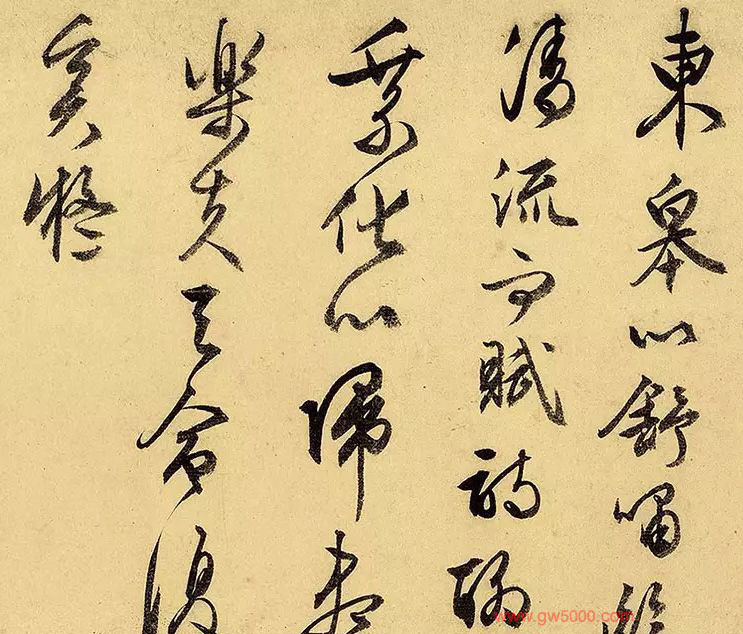 東皋以舒嘯臨
清流而賦詩聊
乘化以歸盡
樂夫天命復
奚疑
www.gw5000.com